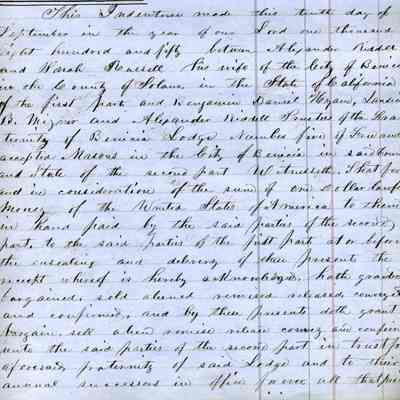 This Indenture made this tenth day of
September in the year of our Lord one thousand
eight hundred and fifty between Alexander Riddell
and Sarah his wife of the City of Benicia
in the County of Solano in the State of California
of the first part and Benjamin Daniel
B. Mizner and Alexander Riddell Trustees of the
ternity of Benicia Lodge Number five of Free and
accepted Masons in the City of Benicia in said
and State of the second part Witnesseth, That for
and in consideration of the sum of one Dollar lawful
money of the United States of America to them
in hand paid by the said parties of the second
part, to the said parties of the first part at or before
the ensealing and delivery of these presents the
receipt whereof is hereby acknowledged, hath granted
bargained, sold aliened remised released conveyed
and confirmed, and by these presents doth grant
bargain, sell alien remise release convey and confirm
unto the said parties of the second part in trust for
aforesaid fraternity of said Lodge and to their
annual successors in office forever all that